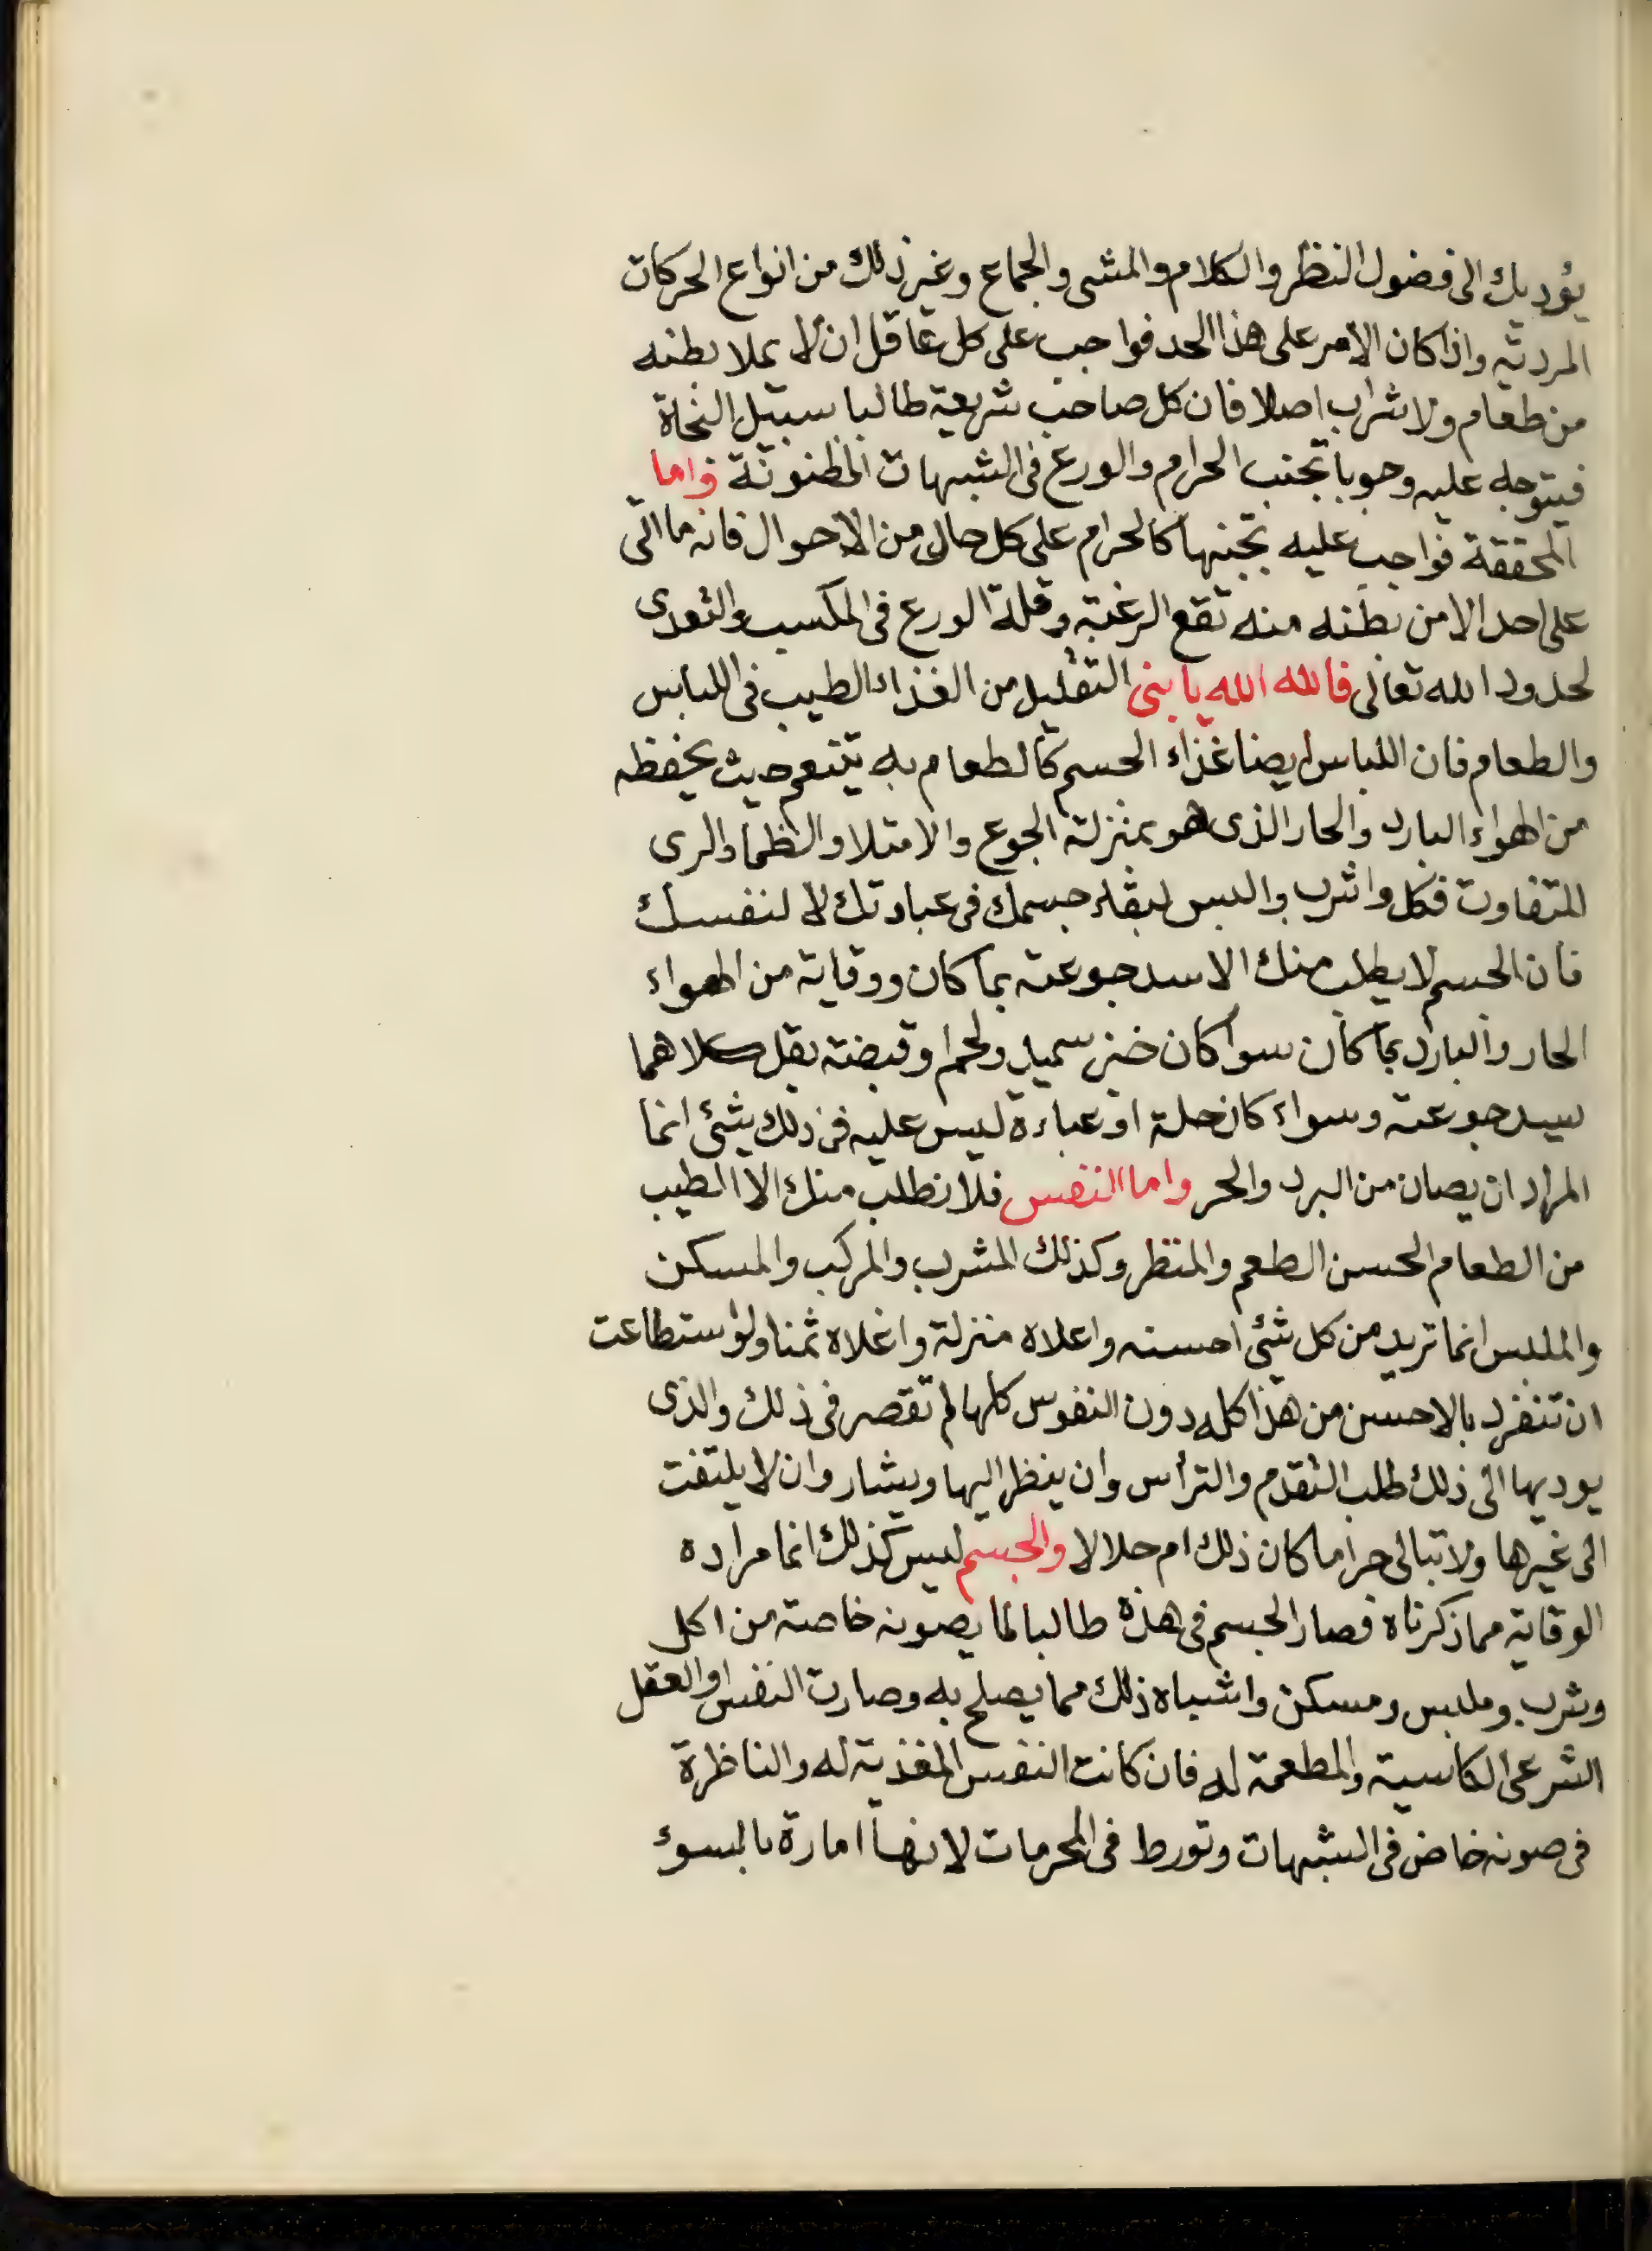 يؤديك الى فضول النظر والكلام والمشى والجماع وغير ذلك من انواع الحركات
المرديه واذا كان الامر على هذا الحد فواجب على كل عاقل ان لا يملا بطنه
من طعام ولا شراب اصلا فان كل صاحب شريعة طالبا سبيل النجاة
فيتوجه عليه وجوبا تجنب الحرام والورع فى الشبهات المظنونة واما
المحققة فواجب عليه تجنبها كالحرام على كل حال من الاحوال فانه ما اتى
على احد الا من بطنه منه تقع الرغبة وقلة الورع فى المكسب والتعدى
لحدود الله تعالى فالله الله يا بنى التقليل من الغذاء الطيب فى اللباس
والطعام فان اللباس ايضا غذاء الجسم كالطعام به يتنعم حيث يحفظه
من الهواء البارد والحار الذى هو بمنزلة الجوع والامتلا والظما والرى
المتفاوت فكل واشرب والبس لبقاء جسمك فى عبادتك لا لنفسك
فان الجسم لا يطلب منك الا سد جوعته بما كان ووقاية من الهواء
الحار والبارد بما كان سوا كان خبز سميد ولحم او قبضة بقل كلاهما
سيسد جوعته وسواء كان حلة او عباءة ليس عليه فى ذلك شئى انما
المراد ان يصان من البرد والحر واما النفس فلا تطلب منك الا الطيب
من الطعام الحسن الطعم والمنظر وكذلك المشرب والمركب والمسكن
والملبس انما تريد من كل شئى احسنه واعلاه منزلة واغلاه ثمنا ولو استطاعت
ان تنفرد بالاحسن من هذا كله دون النفوس كلها لم تقصر فى ذلك والذى
يوديها الى ذلك طلب التقدم والترأس وان ينظر اليها ويشار وان لا يلتفت
الى غيرها ولا تبالى حراما كان ذلك ام حلالا والجسم ليس كذلك انما مراده
الوقاية مما ذكرناه فصار الجسم فى هذه طالبا لما يصونه خاصة من اكل
وشرب وملبس ومسكن واشباه ذلك مما يصلح به وصارت النفس او العقل
الشرعى الكاسية والمطعمة له فان كانت النفس المغذية له والناظرة
فى صونه خاض فى الشبهات وتورط فى المحرمات لانها امارة بالسوء